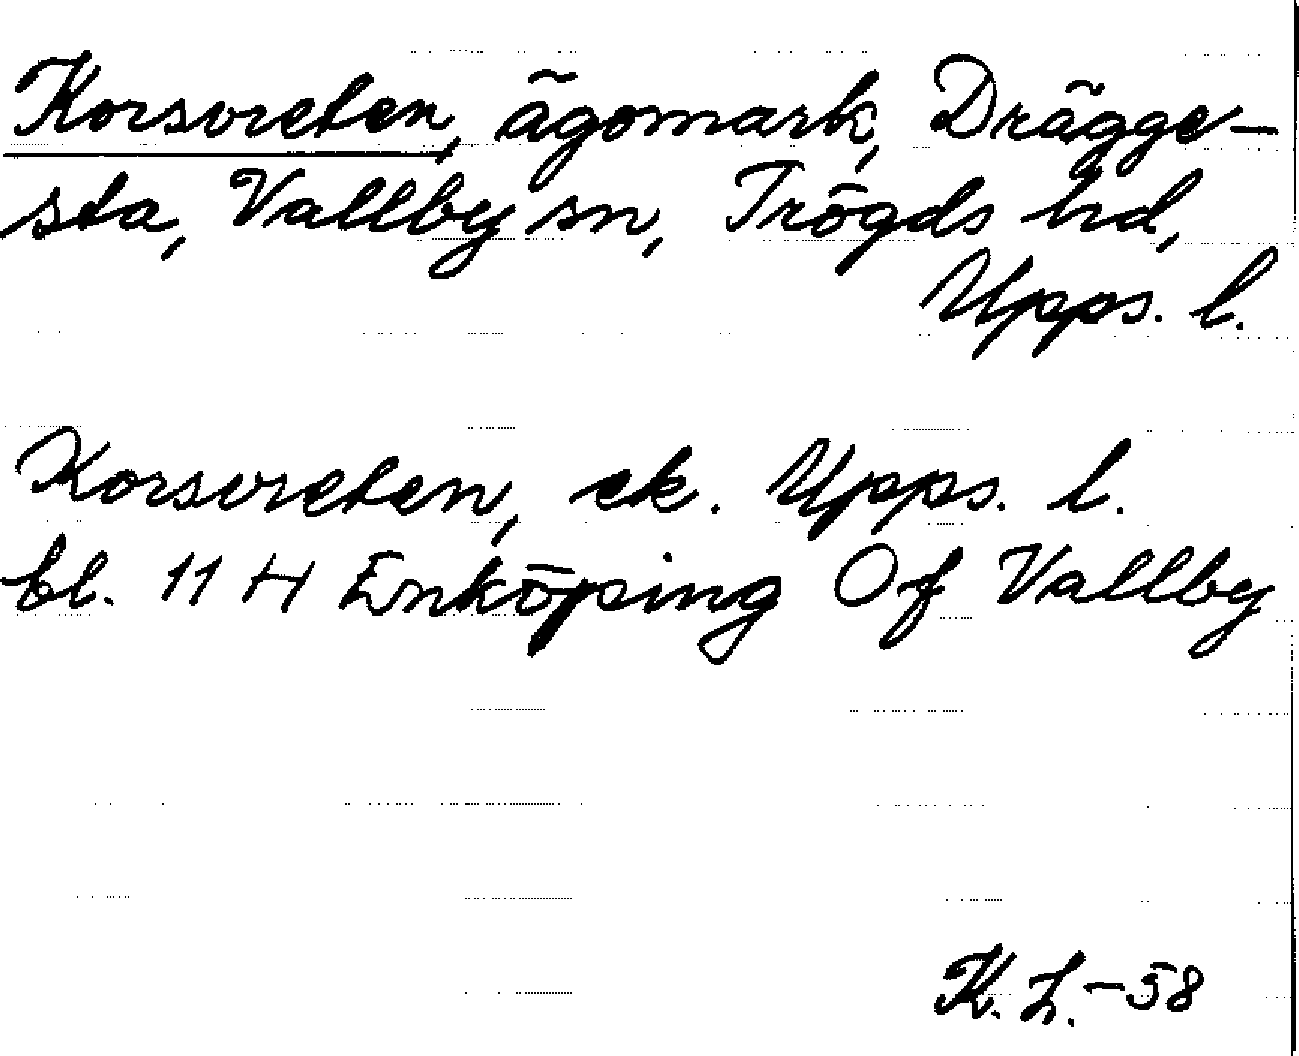 Korsvreten, ägomark, Drägge-
sta, Vallby sn, Trögds hd,
Upps. l.
Korsvreten, ek. Upps. l.
bl. 11 H Enköping Of Vallby
K. L. -58